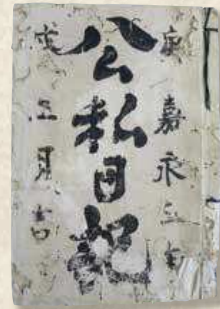 嘉永三
庚
公私日記
戌
正月吉